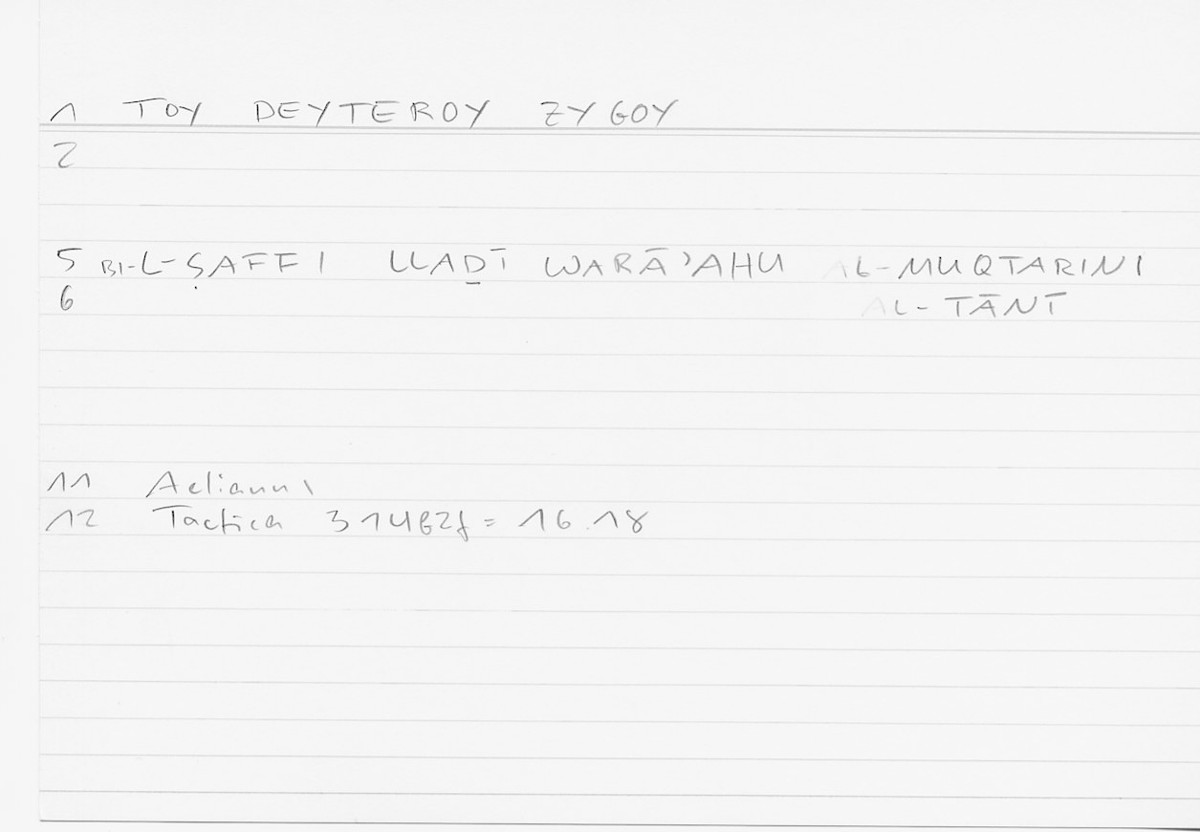 1 TOY DEYTEROY ZYGOY
2
5 BI-L-ṢAFFI LLAḎĪ WARĀʾAHU AL-MUQTARINI
6 AL-TĀNĪ
11 Aelianus
12 Tactica 314b2f = 16.18